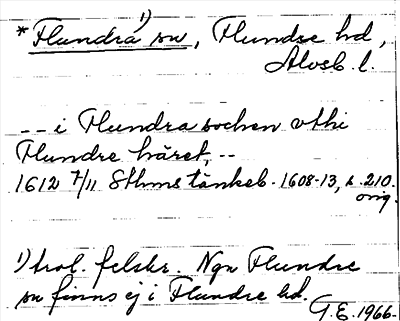 *Flundra ¹⁾ sn, Flundre hd,
Älvsb. l.
-- i Flundra sochen vthi
Flundre häret, --
1612 7/11 Sthms tänkeb. 1608-13, s. 210.
orig.
1) trol. felskr. Ngn Flundre
sn finns ej i Flundre hd.
G.E. 1966.